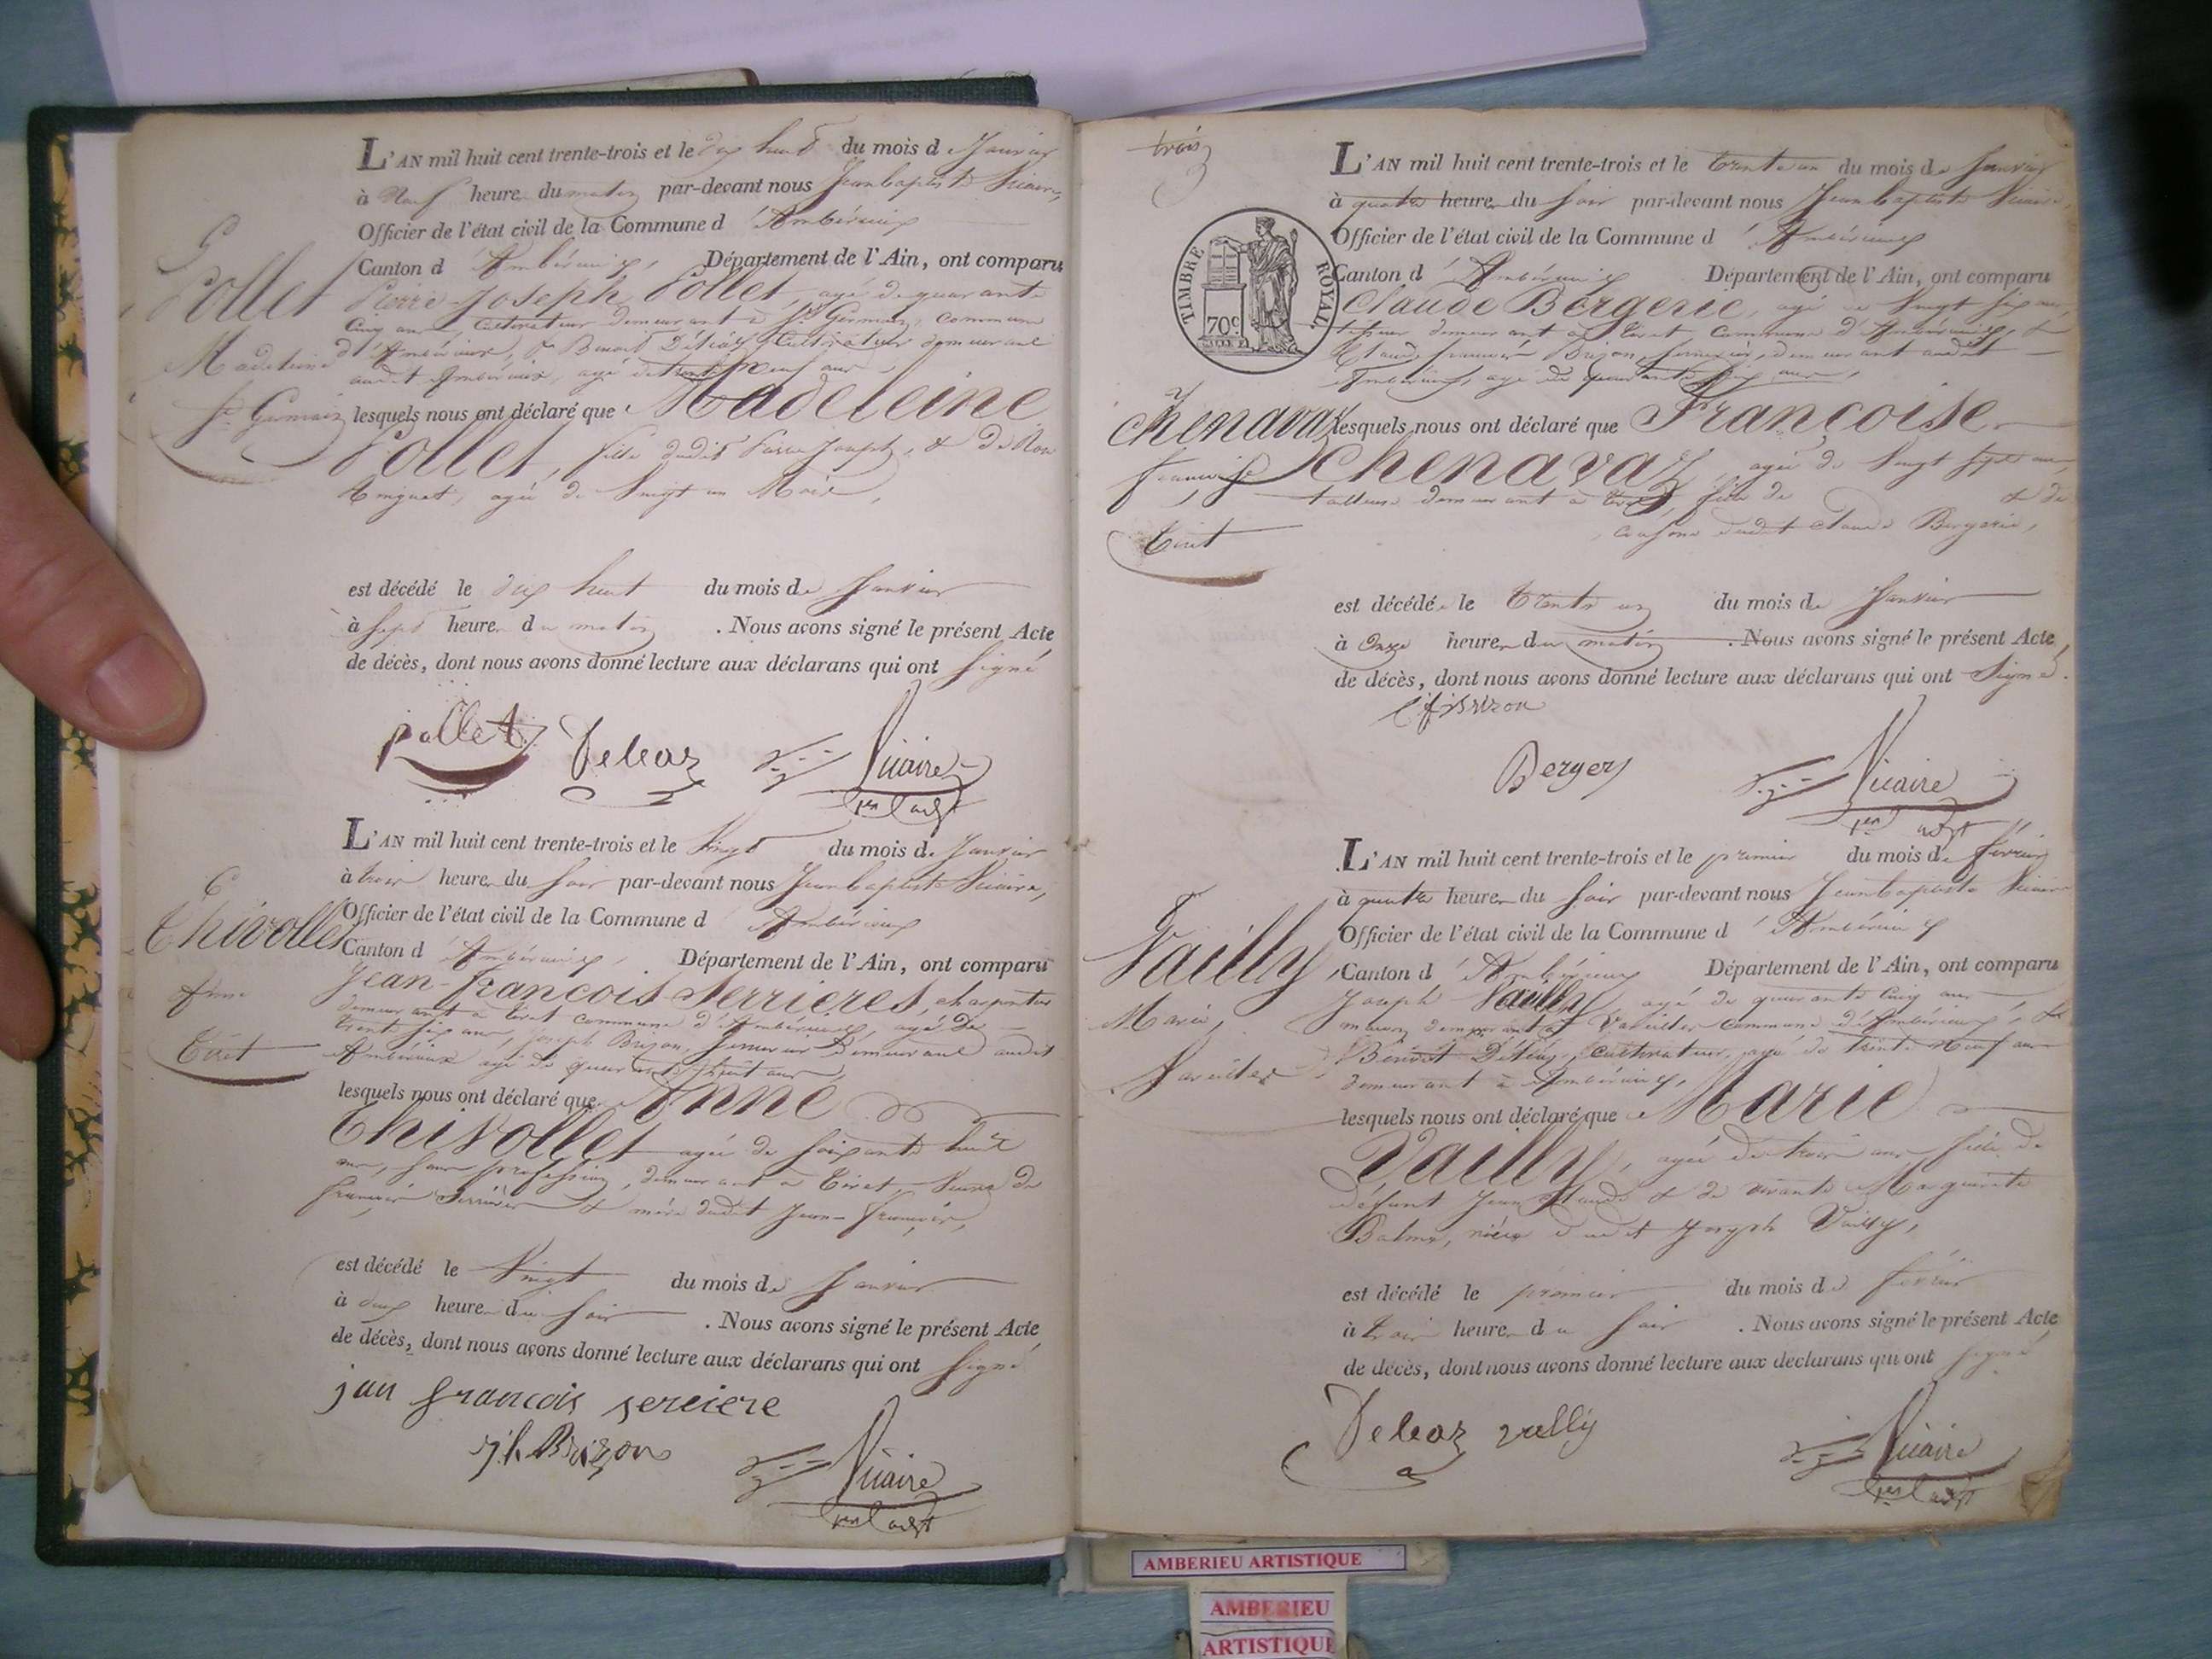 L'AN mil huit cent trente-trois et le dix huit du mois de Janvier
à Neuf heure du matin par-devant nous Jean baptiste Vicaire,
Officier de l'état civil de la Commune d'Ambérieux
Canton d'Ambérieux, Département de l'Ain, ont comparu
5
Pollet
Madeleine
St Germain
Pierre-Joseph Pollet, agé de quarante
Cinq ans, Cultivateur demeurant à St Germain, commune
d'Ambérieux, & Benoit Déléaz Cultivateur demeurant
audit Ambérieux, agé de trente Neuf ans
lesquels nous ont déclaré que Madeleine
Pollet, fille dudit Pierre Joseph, & de
agée de Vingt un Mois,
est décédé le dix huit du mois de Janvier
à Sept heure du matin . Nous avons signé le présent Acte
de décès, dont nous avons donné lecture aux déclarans qui ont Signé
pollet Deleaz Vicaire
1er adjt
L'AN mil huit cent trente-trois et le Vingt du mois de Janvier
à trois heure du Soir par-devant nous Jean baptiste Vicaire,
Officier de l'état civil de la Commune d'Ambérieux
Canton d'Ambérieux, Département de l'Ain, ont comparu
6
Thivollet
Anne
Tiret
Jean-François Serrieres, charpentier
demeurant à Tiret commune d'Ambérieux, agé de
trente six ans, Joseph Brizon, Serrurier Demeurant audit
Ambérieux agé de quarante huit ans
lesquels nous ont déclaré que Anne
Thivollet agée de soixante huit
ans, sans profession, demeurant à Tiret Veuve de
François Serrières & mère dudit Jean-François,
est décédé le Vingt du mois de Janvier
à deux heure du Soir . Nous avons signé le présent Acte
de décès, dont nous avons donné lecture aux déclarans qui ont Signé
jan francois serciere
jh Brizon
Vicaire
1er adjt
trois
L'AN mil huit cent trente-trois et le trente un du mois de Janvier
à quatre heure du Soir par-devant nous Jean baptiste Vicaire,
Officier de l'état civil de la Commune d'Ambérieux
Canton d'Ambérieux Département de l'Ain, ont comparu
TIMBRE ROYAL
70c
7
Chenavaz
Françoise
Tiret
Claude Bergerie, agé de Vingt six ans,
demeurant à Tiret commune d'Ambérieux, &
Claude François Brizon, Serrurier, demeurant audit
Ambérieux, agé de quarante six ans,
lesquels nous ont déclaré que Françoise
Chenavaz, agée de Vingt sept ans,
tailleuse demeurant à Tiret, fille de & de
dudit Claude Bergerie,
est décédée le trente un du mois de Janvier
à Onze heure du matin . Nous avons signé le présent Acte
de décès, dont nous avons donné lecture aux déclarans qui ont Signé.
Brizon
Berger
Vicaire
1er adjt
L'AN mil huit cent trente-trois et le premier du mois de février
à quatre heure du Soir par-devant nous Jean baptiste Vicaire
Officier de l'état civil de la Commune d'Ambérieux
Canton d'Ambérieux Département de l'Ain, ont comparu
Vailly
Marie,
Vareilles
Joseph Vailly, agé de quarante Cinq ans
maçon demeurant à Vareilles commune d'Ambérieux, &
Benoit Déléaz, cultivateur, agé de trente Neuf ans
demeurant à Ambérieux,
lesquels nous ont déclaré que Marie
Vailly, agée de trois ans fille de
défunt Jean Claude & de vivante Marguerite
Balme, nièce dudit Joseph Vailly,
est décédé le premier du mois de février
à trois heure du Soir . Nous avons signé le présent Acte
de décès, dont nous avons donné lecture aux déclarans qui ont signé
Deleaz vally
Vicaire
1er adjt
AMBERIEU ARTISTIQUE
AMBERIEU
ARTISTIQUE